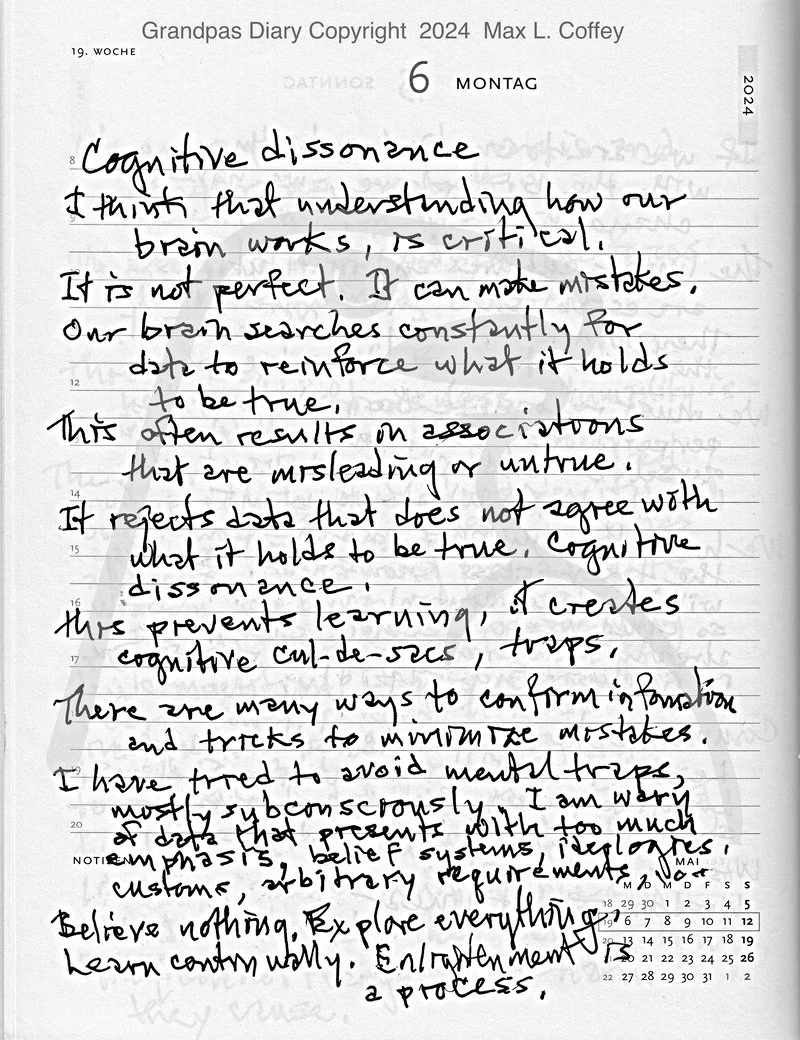 Grandpas Diary Copyright 2024 Max L. Coffey
19. WOCHE
6 MONTAG
2024
8 Cognitive dissonance
I think that understanding how our
9
brain works, is critical.
It is not perfect. It can make mistakes.
Our brain searches constantly for
data to reinforce what it holds
12
to be true.
This often results in associations
that are misleading or untrue.
14
It rejects data that does not agree with
15
what it holds to be true. Cognitive
dissonance.
16
this prevents learning, it creates
17
cognitive cul-de-sacs, traps.
There are many ways to confirm information
and tricks to minimize mistakes.
19
I have tried to avoid mental traps,
mostly subconsciously. I am wary
20
of data that presents with too much
NOTIZEN
emphasis, belief systems, ideologies.
MAI
customs, arbitrary requirements,
M D M D F S S
18 29 30 1 2 3 4 5
Believe nothing, Explore everything.
19 6 7 8 9 10 11 12
20 13 14 15 16 17 18 19
Learn continually. Enlightenment is
20 21 22 23 24 25 26
22 27 28 29 30 31 1 2
a process.